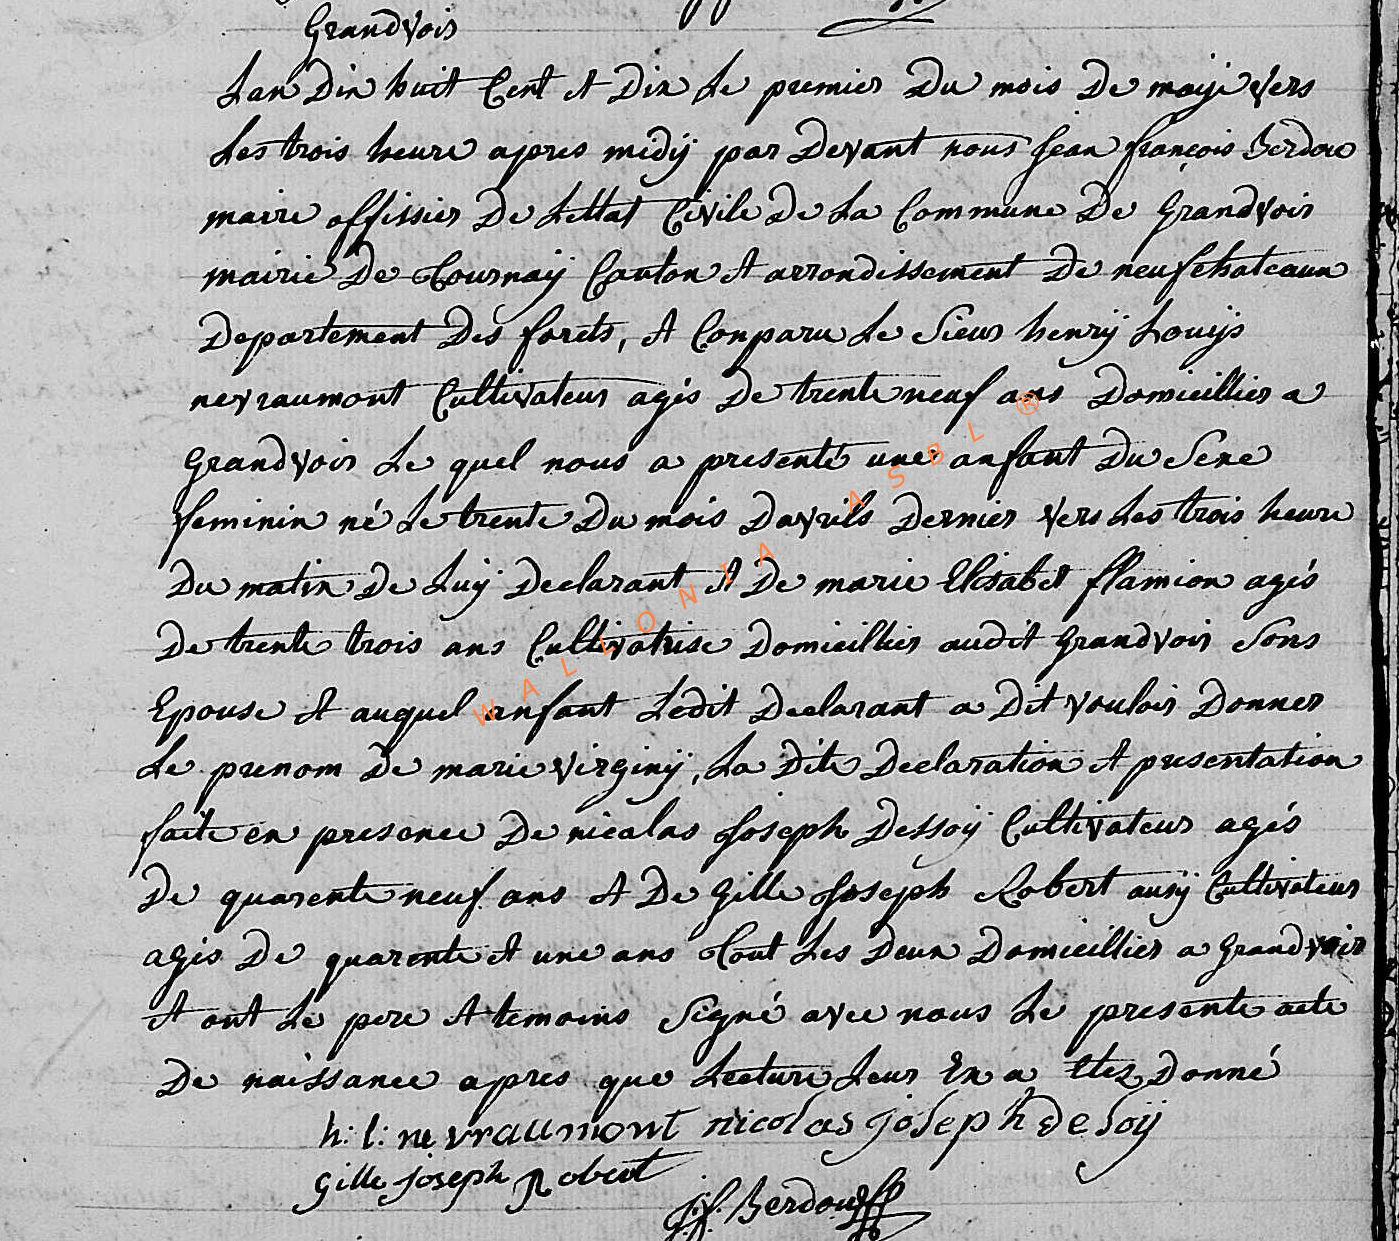 Grandvoir
Lan Dix huit Cent et Dix Le premier Du mois De maÿ vers
Les trois heure apres midÿ par Devant nous jean françois Berdou
maire offissier De Lettat Civile De La Commune De Grandvoir
mairie De Tournaÿ Canton et arrondissement De neufchateaux
Departement Des forets, et Conparu Le Sieur henrÿ Louÿs
nevraumont Cultivateur agés De trente neuf ans Domicillier a
Grandvoir Le quel nous a presenté une anfant Du Sexe
feminin né Le trente Du mois Davrils Dernier vers Les trois heure
Du matin De Luÿ Declarant et De marie Elisabet flamion agés
De trente trois ans Cultivatrise Domicillier audit Grandvoir Sons
Epouse et auquel enfant Ledit Declarant a Dit vouloir Donner
Le prenom De marie virginÿ, La Dite Declaration et presentation
faite en presence De nicolas Joseph Dessoÿ Cultivateur agés
De quarente neuf ans et De Gille Joseph Robert ausÿ Cultivateur
agés De quarente et une ans Tout Les Deux Domicillier a Grandvoir
et ont Le pere et temoins Signé avec nous Le presente acte
De naissance apres que Lecture Leur En a Etez Donné
h: l: nevraumont nicolas joseph deSoÿ
Gille joseph Robert
j: f. Berdou
WALLONIA ASBL ®